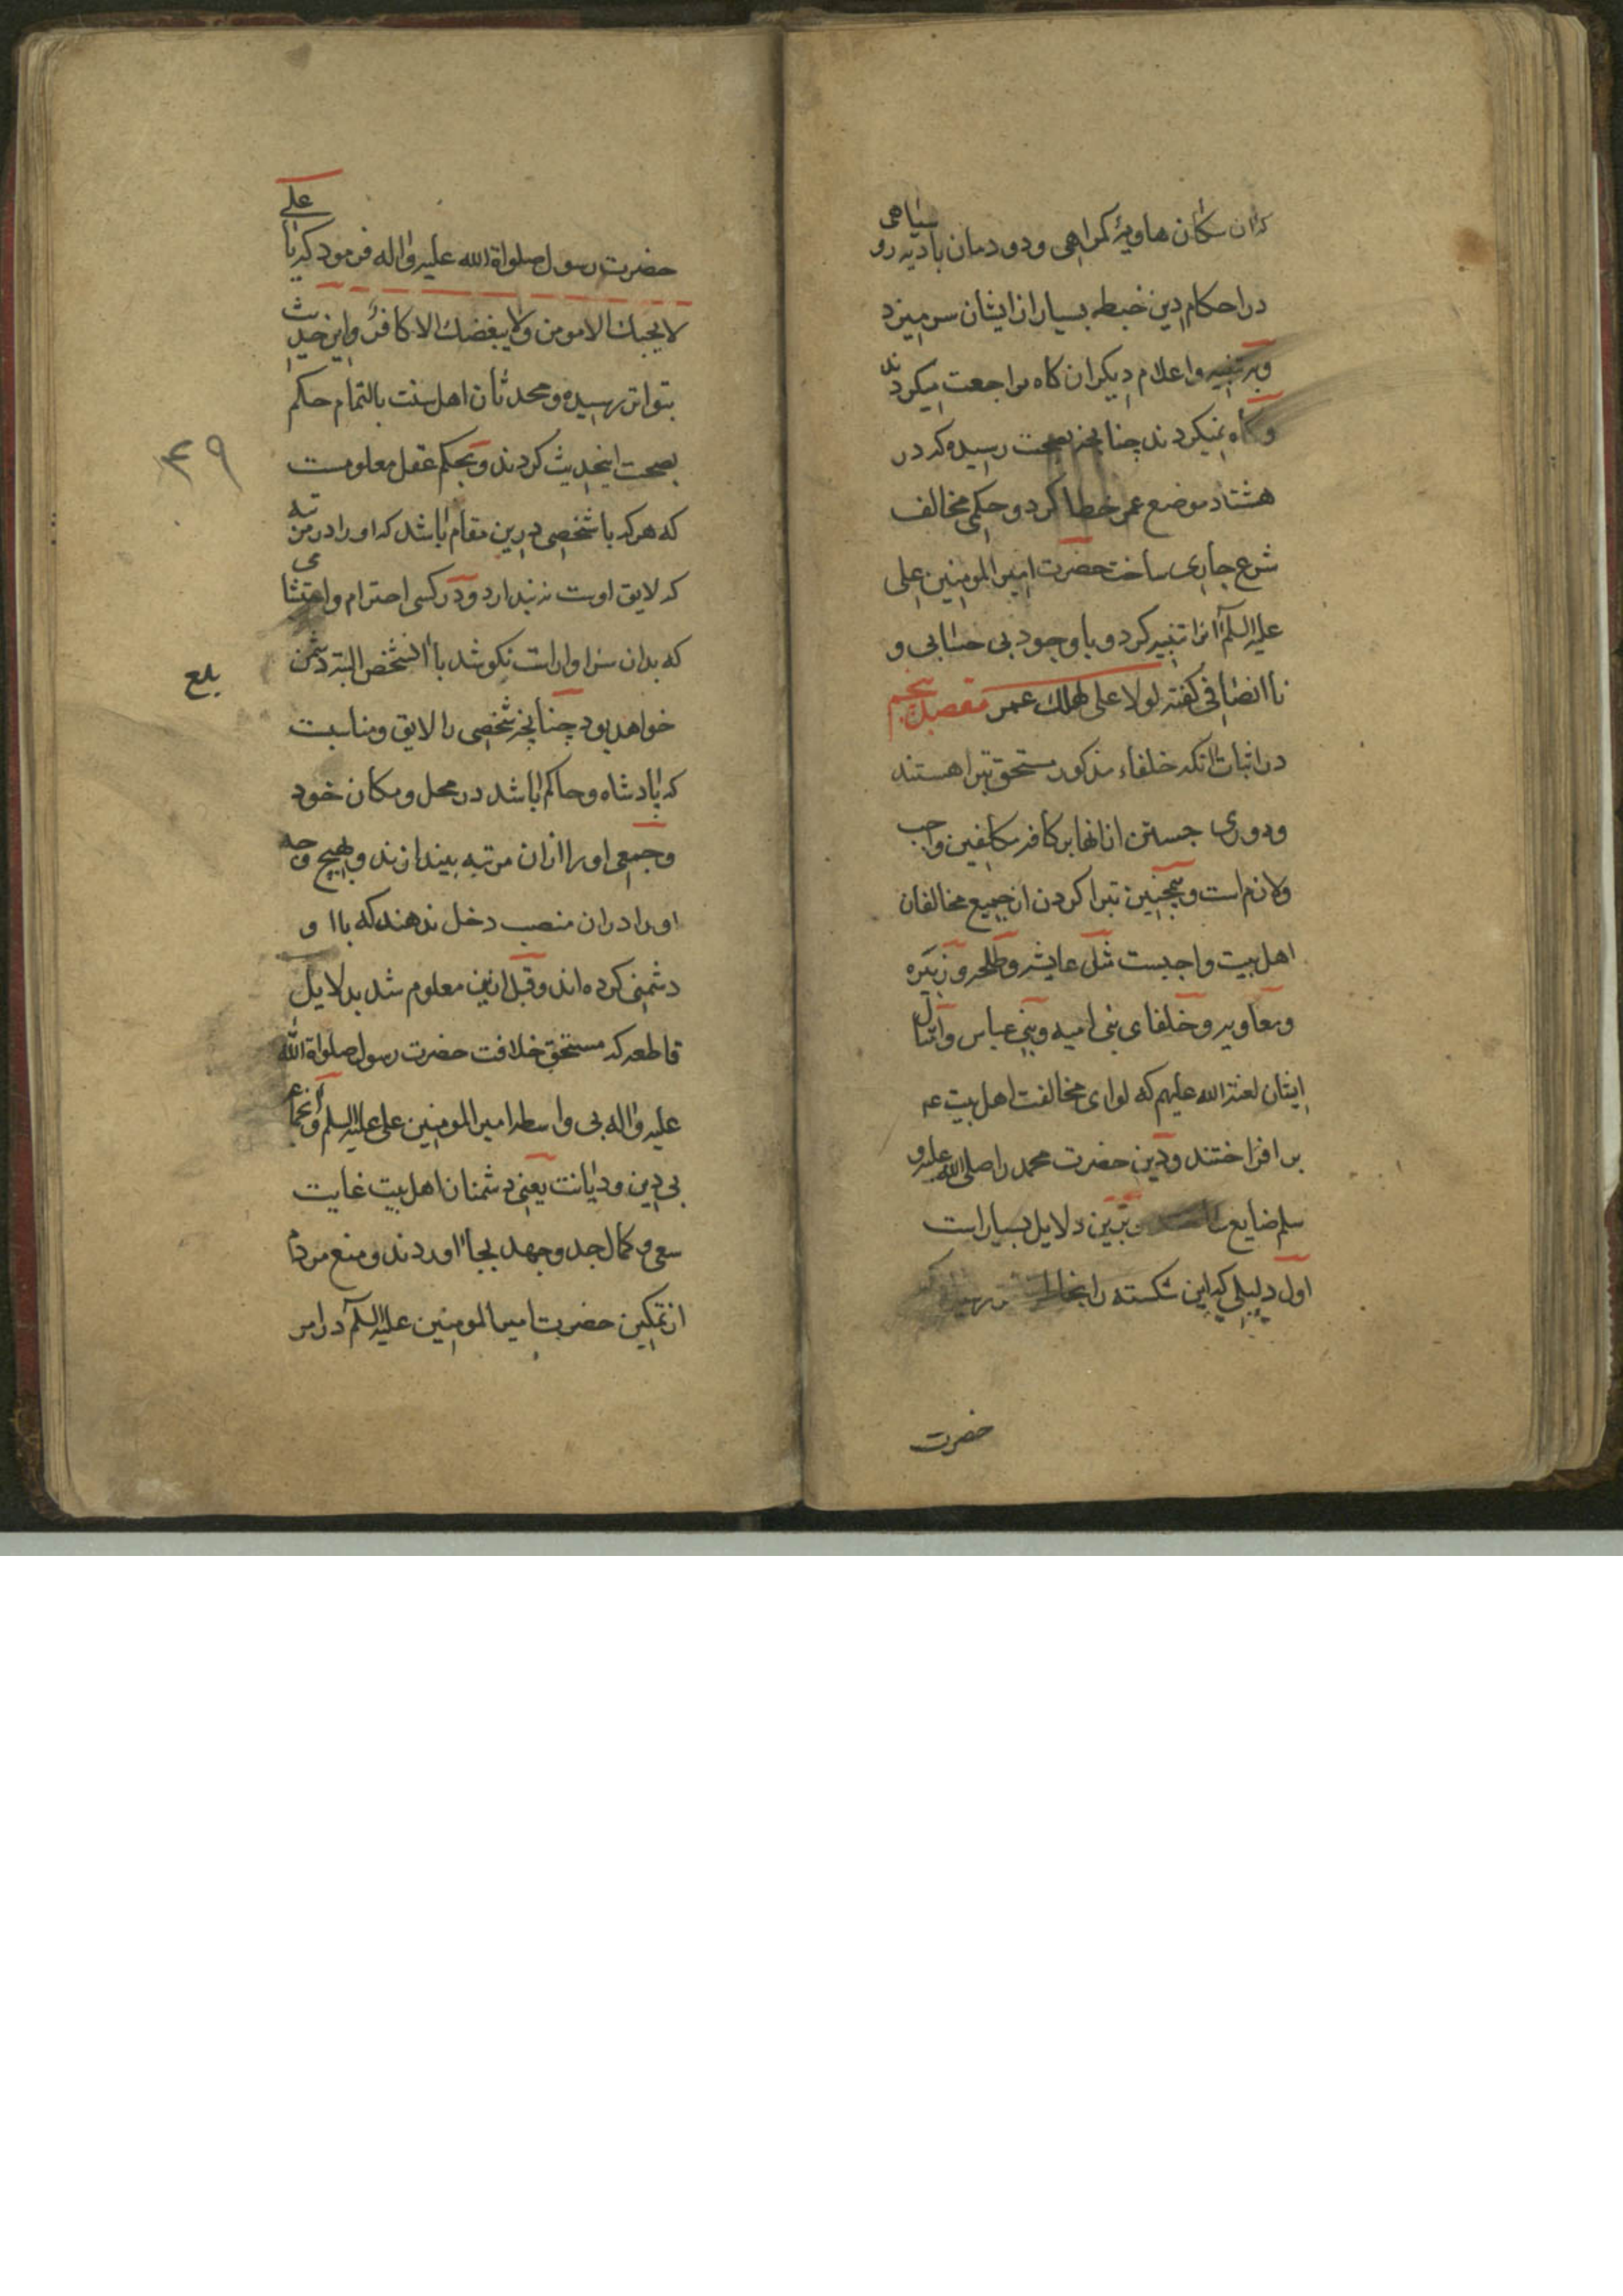 که آن سکان هاویهٔ کمراهی و دودمان بادیه رو سیاهی
در احکام دین خبطه بسیار از ایشان سر میزد
و بر تنبیه و اعلام دیکران کاه مراجعت میکردند
و کاه نمیکردند چنانچه بصحت رسیده که در
هشتاد موضع عمر خطا کرد و حکمی مخالف
شرع جاری ساخت حضرت امیر المومنین علی
علیه السلم آنرا تنبیه کرد و با وجود بی حسابی و
ناانصافی کفته لولا علی لهلک عمر مقصد پنجم
در اثبات آنکه خلفاء مذکور مستحق تبرا هستند
و دوری جستن از انها بر کافه مکلفین واجب
و لازم است و همچنین تبرا کردن از جمیع مخالفان
اهل بیت واجبست مثل عایشه و طلحه و زبیره
و معاویه و خلفای بنی امیه و بنی عباس و امثال
ایشان لعنة الله علیهم که لوای مخالفت اهل بیت عم
بر افراختند و دین حضرت محمد را صلی الله علیه و
سلم ضایع برین دلایل بسیار است
اول دلیلی که این شکسته را بخاطر
حضرت
حضرت رسول صلواة الله علیه و اله فرمود که یا علی
لا یحبك الا مومن ولا یبغضك الا کافر و این حدیث
بتواتر رسیده و محدثان اهل سنت بالتمام حکم
بصحت اینحدیث کردند و بحکم عقل معلومست
۴۹
که هر که با شخصی درین مقام باشد که او را در مرتبه
که لایق اوست نه بندارد و در کسی احترام و اعتنائی
که بدان سزاوارست نکوشد با آنشخص البته دشمن
بلغ
خواهد بود چنانچه شخصی را لایق و مناسبت
که پادشاه و حاکم باشد در محل و مکان خود
و جمعی او را از ان مرتبه بیندازند و بهیچ وجه
او را در ان منصب دخل ندهند که با او
دشمنی کرده اند و قبل ازین معلوم شد بدلایل
قاطعه که مستحق خلافت حضرت رسول صلواة الله
علیه و اله بی واسطه امیر المومنین علی علیه السلم و
بی دین و دیانت یعنی دشمنان اهل بیت غایت
سعی و کمال جد و جهد بجا اوردند و منع مردم
از تمکین حضرت امیر المومنین علیه السلم در امر